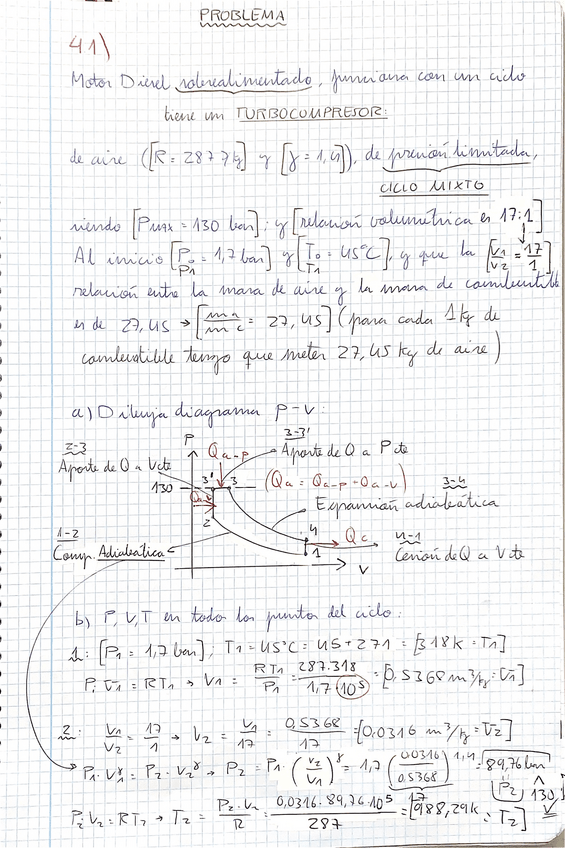 PROBLEMA
41)
Motor Diesel sobrealimentado, funciona con un ciclo
tiene un TURBOCOMPRESOR:
de aire ([R = 287 J/kg] y [γ = 1,4]), de presión limitada,
CICLO MIXTO
siendo [Pmax = 130 bar]; y [relación volumétrica es 17:1]
Al inicio [P0 = 1,7 bar] y [T0 = 45°C], y que la [V1/V2 = 17/1]
P1 T1
relación entre la masa de aire y la masa de combustible
es de 27,45 → [ma/mc = 27,45] (para cada 1kg de
combustible tengo que meter 27,45 kg de aire)
a) Dibuja diagrama p-V:
2-3
Aporte de Q a V cte
P
Qa-p
3-3'
Aporte de Q a P cte
130
3' 3
(Qa = Qa-p - Qa-v)
3-4
Expansión adiabática
Qa-v
2
1-2
Comp. Adiabática
4
Qc
1
4-1
Cesión de Q a V cte
V
b) P, V, T en todos los puntos del ciclo:
1: [P1 = 1,7 bar]; T1 = 45°C = 45 + 271 = [318K = T1]
P1·V1 = RT1 → V1 = RT1/P1 = 287·318/1,7·10^5 = [0,5368 m³/kg = V1]
2: V1/V2 = 17/1 → V2 = V1/17 = 0,5368/17 = [0,0316 m³/kg = V2]
P1·V1^γ = P2·V2^γ → P2 = P1·(V2/V1)^γ = 1,7 (0,0316/0,5368)^1,4 = 89,76 bar
17
P2
130
P2·V2 = RT2 → T2 = P2·V2/R = 0,0316·89,76·10^5/287 = [988,29K = T2]